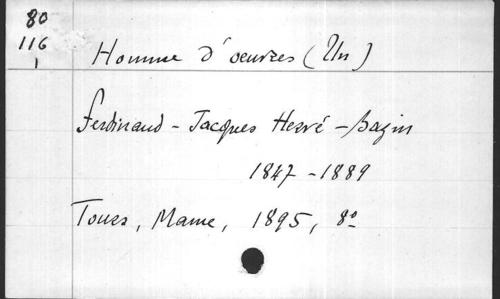 80
116
1
Homme d'oeuvres (Un)
Ferdinand-Jacques Hervé-Bazin
1847-1889
Tours, Mame, 1895, 8º